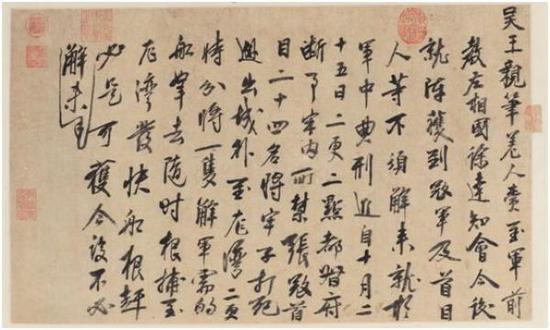 吳王親筆差人賫至軍前
教左相國徐達知會今後
就陣獲到寇軍及首目
人等不須解來就於
軍中典刑近自十月二
十五日二更二點都督府
断事牢内所禁張寇首
目二十四名將牢子打死
逃出城外至龍灣二更
時分將一隻解軍需的
船去隨時根捕至
龍灣發快船根趕
必是可獲今後不必
解來